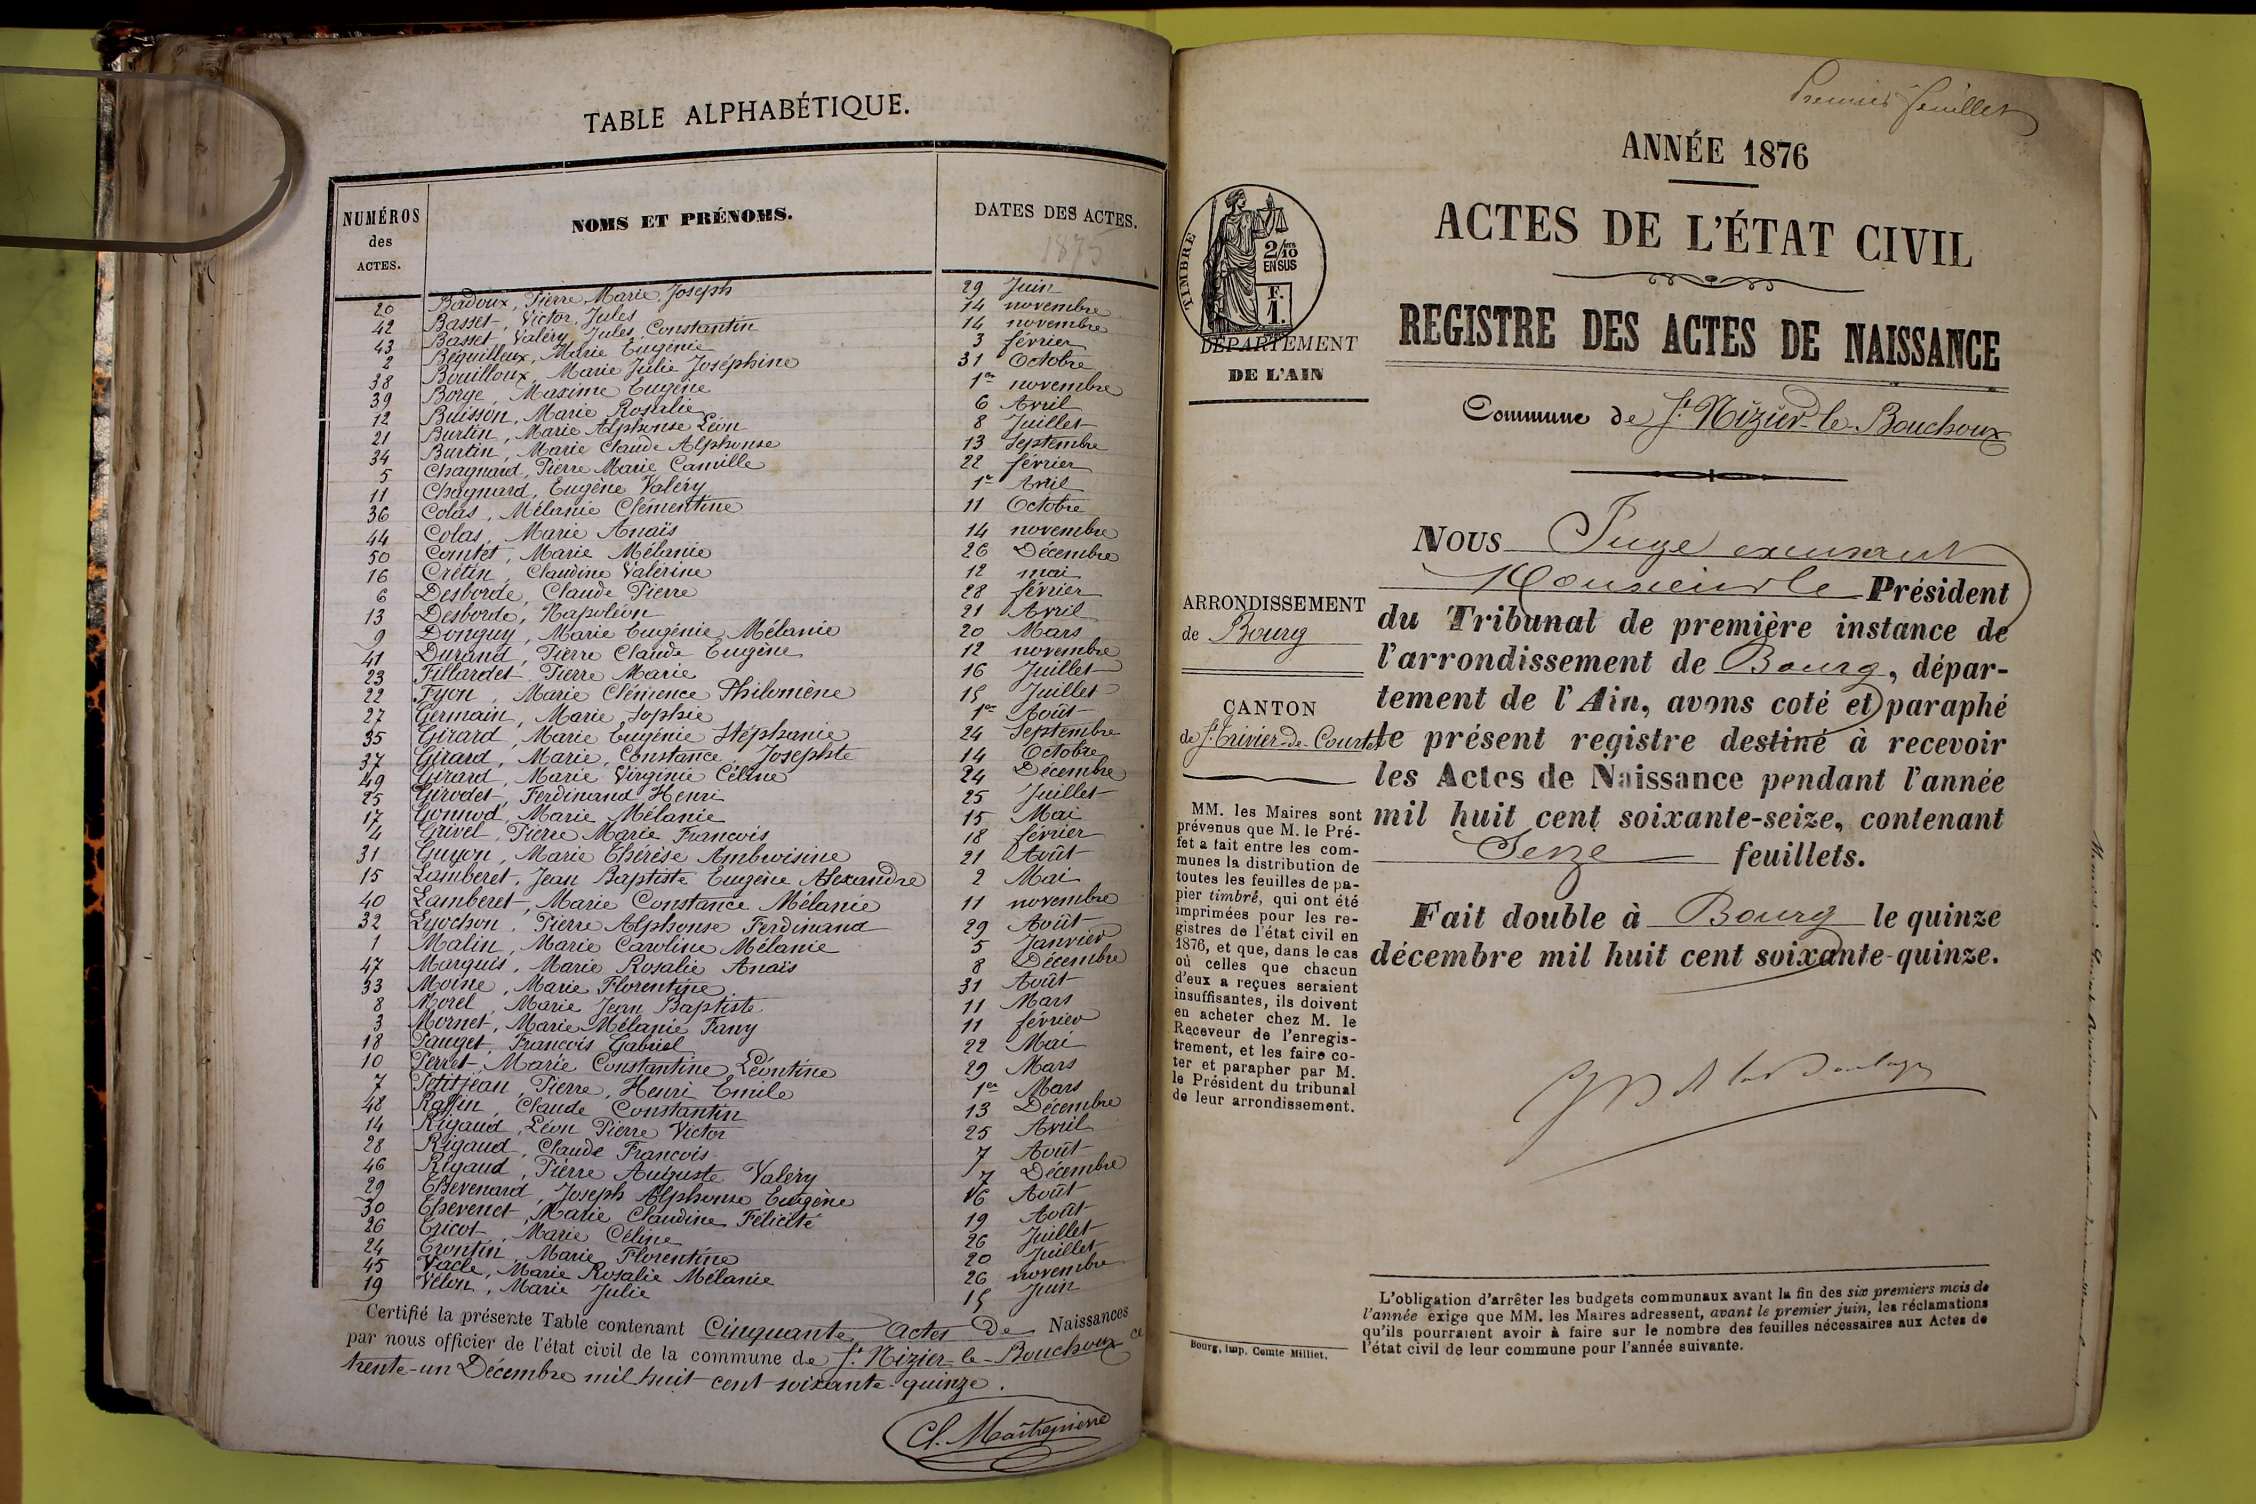 TABLE ALPHABÉTIQUE.
NUMÉROS des ACTES. NOMS ET PRÉNOMS. DATES DES ACTES.
1875
20 Badoux, Pierre Marie Joseph 29 Juin
42 Basset, Victor, Jules 14 novembre
43 Basset, Valéry Jules, Constantin 14 novembre
2 Béquilleux, Marie Eugénie 3 février
38 Bouilloux, Marie Julie Joséphine 31 Octobre
39 Borge, Maxime Eugène 1er novembre
12 Buisson, Marie Rosalie 6 Avril
21 Burtin, Marie Alphonse Léon 8 Juillet
34 Burtin, Marie Claude Alphonse 13 Septembre
5 Chagnard, Pierre Marie Camille 22 février
11 Chagnard, Eugène Valéry 1er Avril
36 Colas, Mélanie Clémentine 11 Octobre
44 Colas, Marie Anaïs 14 novembre
50 Comtet, Marie Mélanie 26 Décembre
16 Crétin, Claudine Valérine 12 mai
6 Desborde, Claude Pierre 28 février
13 Desborde, Napoléon 21 Avril
9 Donguy, Marie Eugénie Mélanie 20 Mars
41 Durand, Pierre Claude Eugène 12 novembre
23 Fillardet, Pierre Marie 16 Juillet
22 Fyon, Marie Clémence Philomène 15 Juillet
27 Germain, Marie Sophie 1er Août
35 Girard, Marie Eugénie Stéphanie 24 Septembre
37 Girard, Marie, Constance, Josephte 14 Octobre
49 Girard, Marie Virginie Céline 24 Décembre
25 Girodet, Ferdinand Henri 25 Juillet
17 Gonnod, Marie Mélanie 15 Mai
4 Grivel, Pierre Marie François 18 février
31 Guyon, Marie Thérèse Ambroisine 21 Août
15 Lamberet, Jean Baptiste Eugène Alexandre 2 Mai
40 Lamberet, Marie Constance Mélanie 11 novembre
32 Lyochon, Pierre Alphonse Ferdinand 29 Août
1 Malin, Marie Caroline Mélanie 5 Janvier
47 Marquis, Marie Rosalie Anaïs 8 Décembre
33 Moine, Marie Florentine 31 Août
8 Morel, Marie Jean Baptiste 11 Mars
3 Mornet, Marie Mélanie Fany 11 février
18 Pauget, François Gabriel 22 Mai
10 Perret, Marie Constantine Léontine 29 Mars
7 Petitjean, Pierre, Henri Emile 1er Mars
48 Raffin, Claude Constantin 13 Décembre
14 Rigaud, Léon Pierre Victor 25 Avril
28 Rigaud, Claude François 7 Août
46 Rigaud, Pierre Auguste Valéry 7 Décembre
29 Thevenard, Joseph Alphonse Eugène 16 Août
30 Thevenet, Marie Claudine Félicité 19 Août
26 Tricot, Marie Céline 26 Juillet
24 Trontin, Marie Florentine 20 Juillet
45 Viacle, Marie Rosalie Mélanie 26 novembre
19 Vélon, Marie Julie 15 Juin
Certifié la présente Table contenant Cinquante, Actes de Naissances
par nous officier de l'état civil de la commune de St Nizier-le-Bouchoux ce
trente-un Décembre mil huit cent soixante-quinze.
Cl. Maîtrepierre
Premier feuillet
ANNÉE 1876
ACTES DE L'ÉTAT CIVIL
REGISTRE DES ACTES DE NAISSANCE
Commune de St Nizier-le-Bouchoux
TIMBRE
2/10
EN SUS
F.
1.
DÉPARTEMENT
DE L'AIN
ARRONDISSEMENT
de Bourg
CANTON
de St Trivier-de-Courtes
MM. les Maires sont
prévenus que M. le Pré-
fet a fait entre les com-
munes la distribution de
toutes les feuilles de pa-
pier timbré, qui ont été
imprimées pour les re-
gistres de l'état civil en
1876, et que, dans le cas
où celles que chacun
d'eux a reçues seraient
insuffisantes, ils doivent
en acheter chez M. le
Receveur de l'enregis-
trement, et les faire co-
ter et parapher par M.
le Président du tribunal
de leur arrondissement.
NOUS Juge excusant
Monsieur le Président
du Tribunal de première instance de
l'arrondissement de Bourg, dépar-
tement de l'Ain, avons coté et paraphé
le présent registre destiné à recevoir
les Actes de Naissance pendant l'année
mil huit cent soixante-seize, contenant
Seize feuillets.
Fait double à Bourg le quinze
décembre mil huit cent soixante-quinze.
L'obligation d'arrêter les budgets communaux avant la fin des six premiers mois de
l'année exige que MM. les Maires adressent, avant le premier juin, les réclamations
qu'ils pourraient avoir à faire sur le nombre des feuilles nécessaires aux Actes de
l'état civil de leur commune pour l'année suivante.
Bourg, Imp. Comte Milliet.